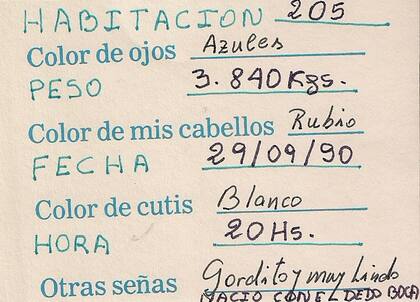 HABITACION 205
Color de ojos Azules
PESO 3.840Kgs.
Color de mis cabellos Rubio
FECHA 29/09/90
Color de cutis Blanco
HORA 20Hs.
Otras señas Gordito y muy Lindo
NACIO CON EL DEDO BOCA